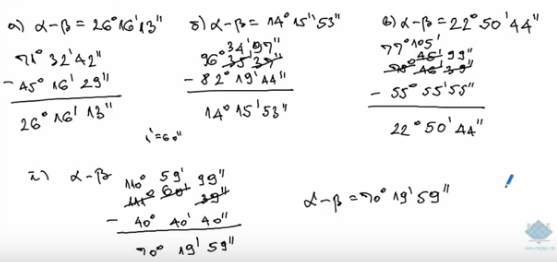 а) α-β = 26° 16' 13"
71° 32' 42"
- 45° 16' 29"
26° 16' 13"
б) α-β = 14° 15' 53"
34' 97"
96° 35' 37"
- 82° 19' 44"
14° 15' 53"
1' = 60"
в) α-β = 22° 50' 44"
77° 105'
45' 99"
78° 46' 39"
- 55° 55' 55"
22° 50' 44"
г) α-β
110° 59' 99"
111° 60' 39"
- 40° 40' 40"
70° 19' 59"
α-β = 70° 19' 59"